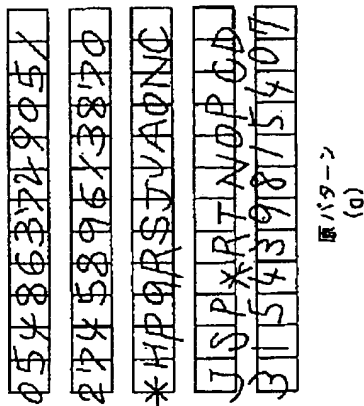 054863729051
274589613870
*HPQRSJVAONC
JSP*RTNOPCD
315439815407
原パターン
(a)